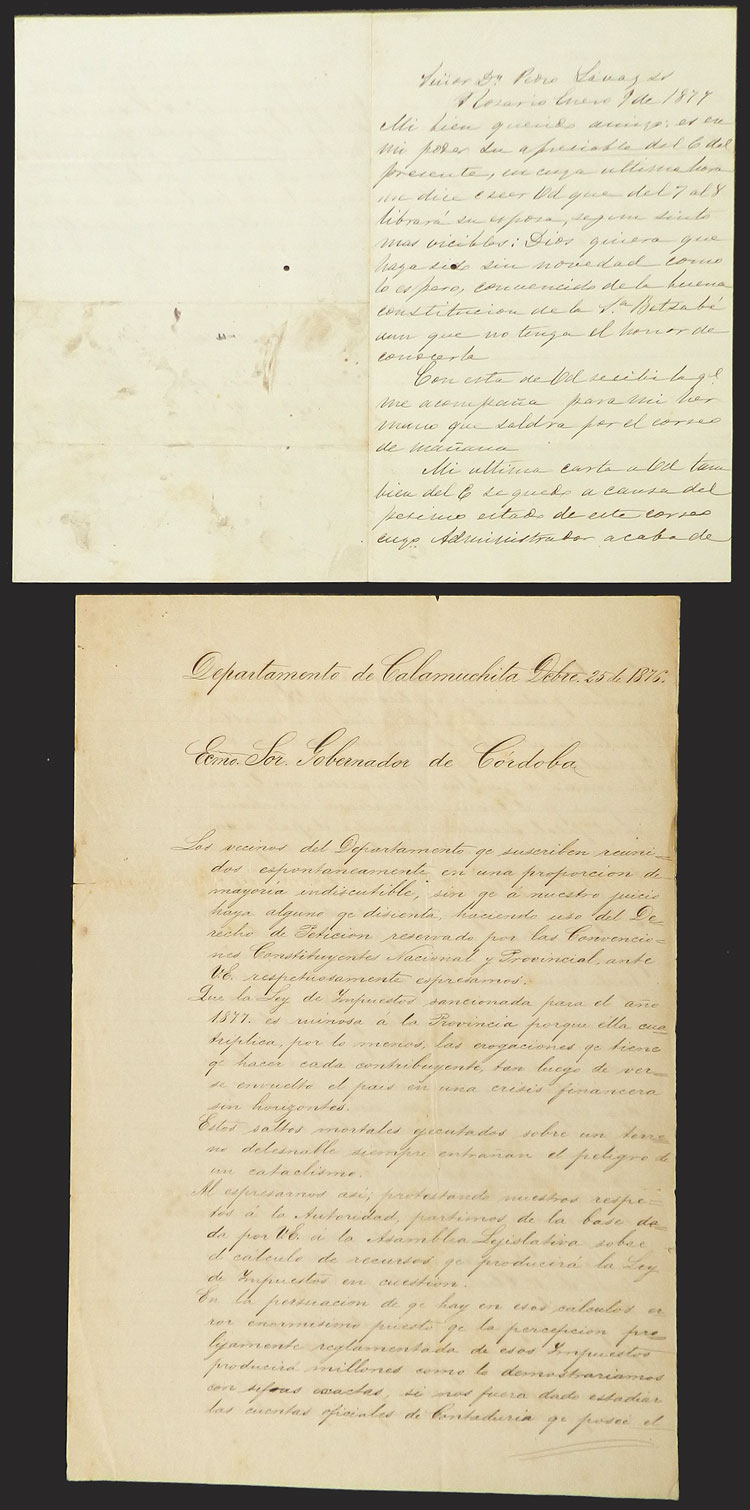 Señor Dn Pedro
Rosario Enero 9 de 1877
Mi bien querido amigo: es en
mi poder su apreciable del 6 del
presente, en cuya ultima hora
me dice creer Ud que del 7 al 8
librará su esposa, segun sintomas
mas vicibles: Dios quiera que
haya sido sin novedad como
lo espero, convencido de la buena
constitucion de la Sa Betsabé
aun que no tenga el honor de
conocerla
Con esta de Ud recibi la qe
me acompaña para mi her
mano que saldra por el correo
de mañana
Mi ultima carta a Ud tam
bien del 6 se quedo a causa del
pesimo estado de este correo
cuyo Administrador acaba de
Departamento de Calamuchita Dcbre. 25 de 1876.
Ecmo. Sor. Gobernador de Córdoba
Los vecinos del Departamento qe suscriben reuni-
dos espontaneamente en una proporcion de
mayoría indiscutible, sin qe á nuestro juicio
haya alguno qe disienta, haciendo uso del De-
recho de Peticion reservado por las Convencio-
nes Constituyentes Nacional y Provincial, ante
VE. respetuosamente espresamos:
Que la Ley de Impuestos sancionada para el año
1877. es ruinosa á la Provincia porque élla cua-
triplica, por lo menos, las erogaciones qe tiene
qe hacer cada contribuyente, tan luego de ver-
se envuelto el pais en una crisis financera
sin horizontes.
Estos saltos mortales ejecutados sobre un terre-
no delesnable siempre entrañan el peligro de
un cataclismo.
Al espresarnos asi, protestando nuestros respe-
tos á la Autoridad, partimos de la base da-
da por VE. á la Asamblea Lejislativa sobre
el calculo de recursos qe producirá la Ley
de Impuestos en cuestion.
En la persuacion de qe hay en esos calculos er
ror enormisimo puesto qe la percepcion pro-
lijamente reglamentada de esos Impuestos
producirá millones como lo demostrariamos
con sifras exactas, si nos fuera dado estudiar
las cuentas oficiales de Contaduria qe posee el